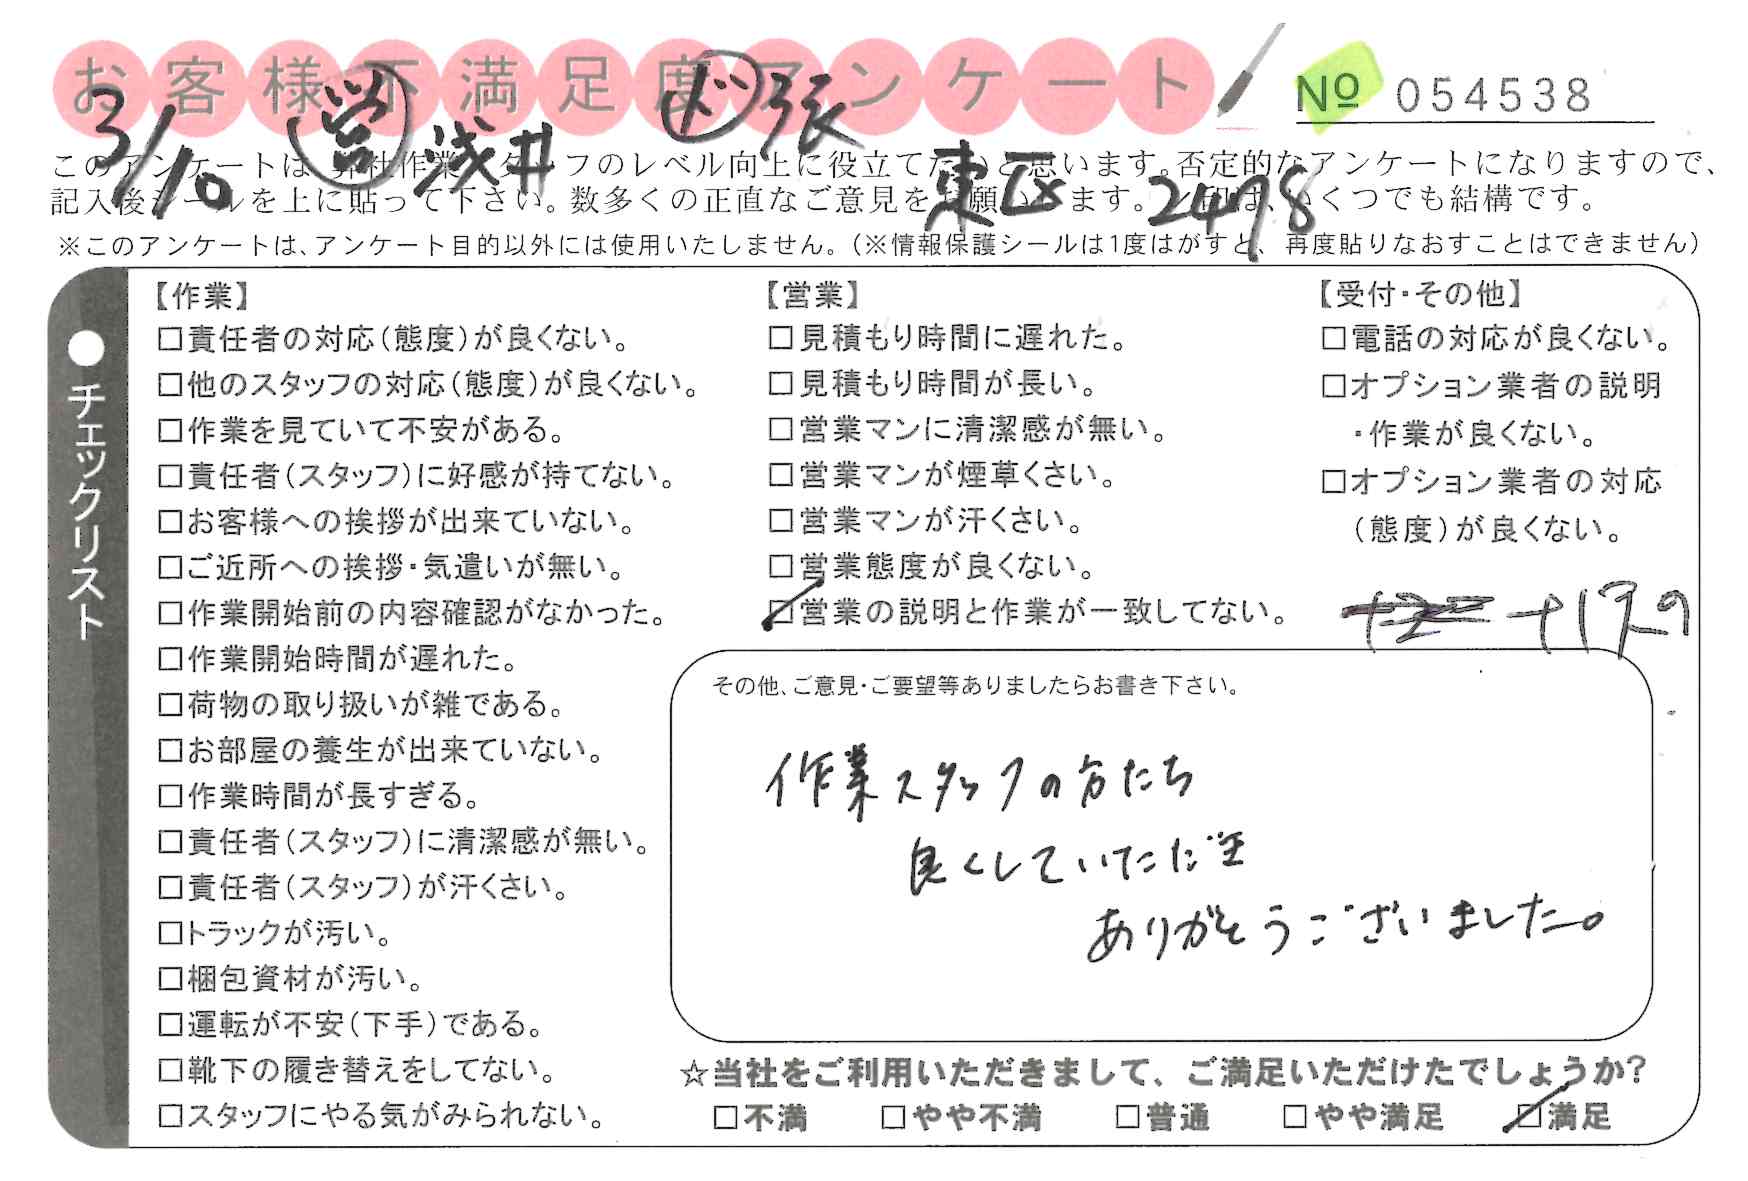 お客様不満足度アンケート
№ 054538
3/10 営 浅井 ド 張
東区 2498
このアンケートは、弊社作業スタッフのレベル向上に役立てたいと思います。否定的なアンケートになりますので、
記入後シールを上に貼って下さい。数多くの正直なご意見をお願いします。レ印は、いくつでも結構です。
※このアンケートは、アンケート目的以外には使用いたしません。(※情報保護シールは1度はがすと、再度貼りなおすことはできません)
●チェックリスト
【作業】
□責任者の対応(態度)が良くない。
□他のスタッフの対応(態度)が良くない。
□作業を見ていて不安がある。
□責任者(スタッフ)に好感が持てない。
□お客様への挨拶が出来ていない。
□ご近所への挨拶・気遣いが無い。
□作業開始前の内容確認がなかった。
□作業開始時間が遅れた。
□荷物の取り扱いが雑である。
□お部屋の養生が出来ていない。
□作業時間が長すぎる。
□責任者(スタッフ)に清潔感が無い。
□責任者(スタッフ)が汗くさい。
□トラックが汚い。
□梱包資材が汚い。
□運転が不安(下手)である。
□靴下の履き替えをしてない。
□スタッフにやる気がみられない。
【営業】
□見積もり時間に遅れた。
□見積もり時間が長い。
□営業マンに清潔感が無い。
□営業マンが煙草くさい。
□営業マンが汗くさい。
□営業態度が良くない。
☑営業の説明と作業が一致してない。
【受付・その他】
□電話の対応が良くない。
□オプション業者の説明
・作業が良くない。
□オプション業者の対応
(態度)が良くない。
その他、ご意見・ご要望等ありましたらお書き下さい。
作業スタッフの方たち
良くしていただき
ありがとうございました。
☆当社をご利用いただきまして、ご満足いただけたでしょうか?
□不満 □やや不満 □普通 □やや満足 ☑満足